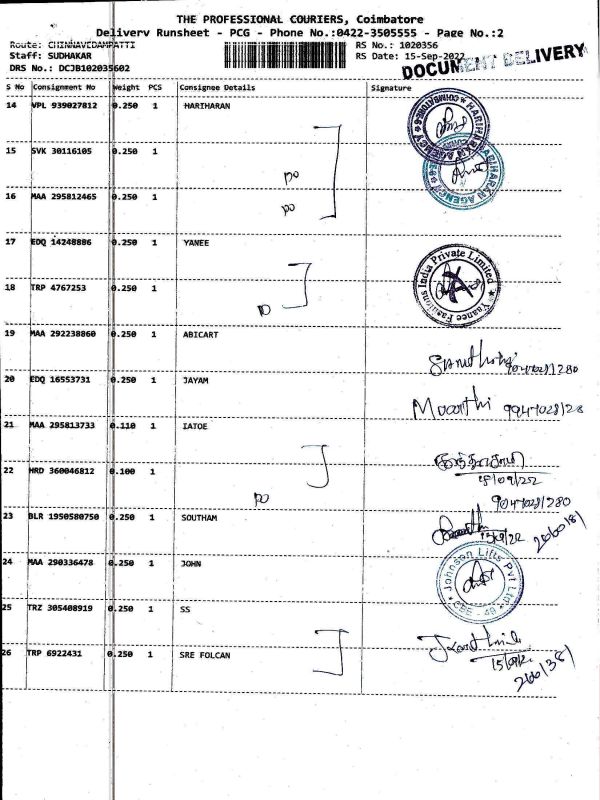 THE PROFESSIONAL COURIERS, Coimbatore
Delivery Runsheet - PCG - Phone No.:0422-3505555 - Page No.:2
Route: CHINNAVEDAMPATTI RS No.: 1020356
Staff: SUDHAKAR RS Date: 15-Sep-2022
DRS No.: DCJB102035602
DOCUMENT DELIVERY
S No Consignment No Weight PCS Consignee Details Signature
14 VPL 939027812 0.250 1 HARIHARAN
HARIHARAN AGENCY
15 SVK 30116105 0.250 1
HARIHARAN AGENCY
DO
16 MAA 295812465 0.250 1
DO
17 EDQ 14248886 0.250 1 YANEE
Yaanee Fashions India Private Limited
18 TRP 4767253 0.250 1
DO
19 MAA 292238860 0.250 1 ABICART
20 EDQ 16553731 0.250 1 JAYAM
21 MAA 295813733 0.110 1 IATOE
22 HRD 360046812 0.100 1
DO
90470281280
23 BLR 1950580750 0.250 1 SOUTHAM
24 MAA 290336478 0.250 1 JOHN
Johnson Lifts Pvt Ltd
CBE - 49
25 TRZ 305408919 0.250 1 SS
26 TRP 6922431 0.250 1 SRE FOLCAN